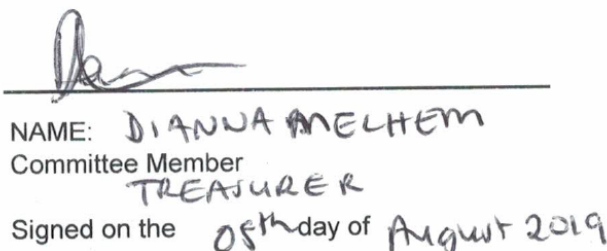 NAME: DIANNA MELHEM
Committee Member
TREASURER
Signed on the 08th day of August 2019